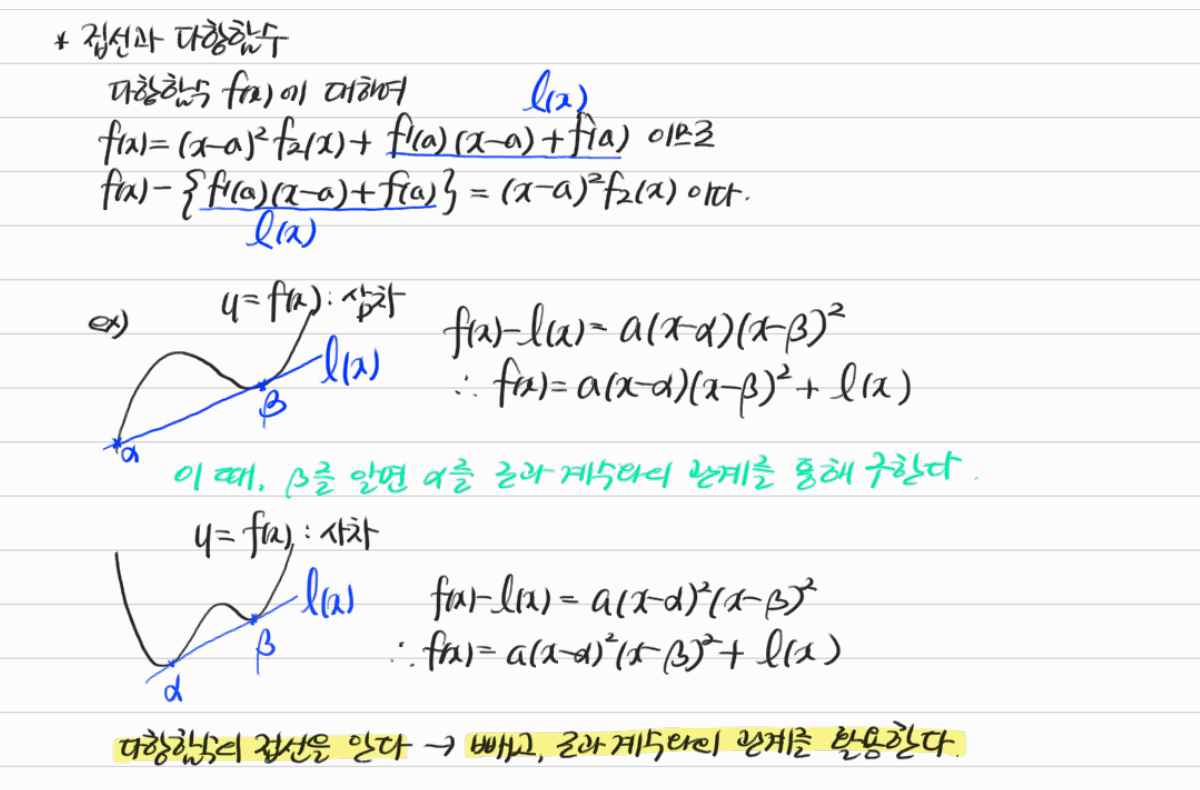 * 접선과 다항함수
다항함수 f(x)에 대하여
l(x)
f(x)=(x-a)²f₂(x)+f'(a)(x-a)+f(a) 이므로
f(x)-{f'(a)(x-a)+f(a)}=(x-a)²f₂(x) 이다.
l(x)
ex)
y=f(x):삼차
l(x)
β
α
f(x)-l(x)=a(x-α)(x-β)²
∴ f(x)=a(x-α)(x-β)²+l(x)
이 때, β를 알면 α를 근과 계수와의 관계를 통해 구한다.
y=f(x):사차
l(x)
β
α
f(x)-l(x)=a(x-α)²(x-β)²
∴ f(x)=a(x-α)²(x-β)²+l(x)
다항함수의 접선을 안다 → 빼고, 근과 계수와의 관계를 활용한다.